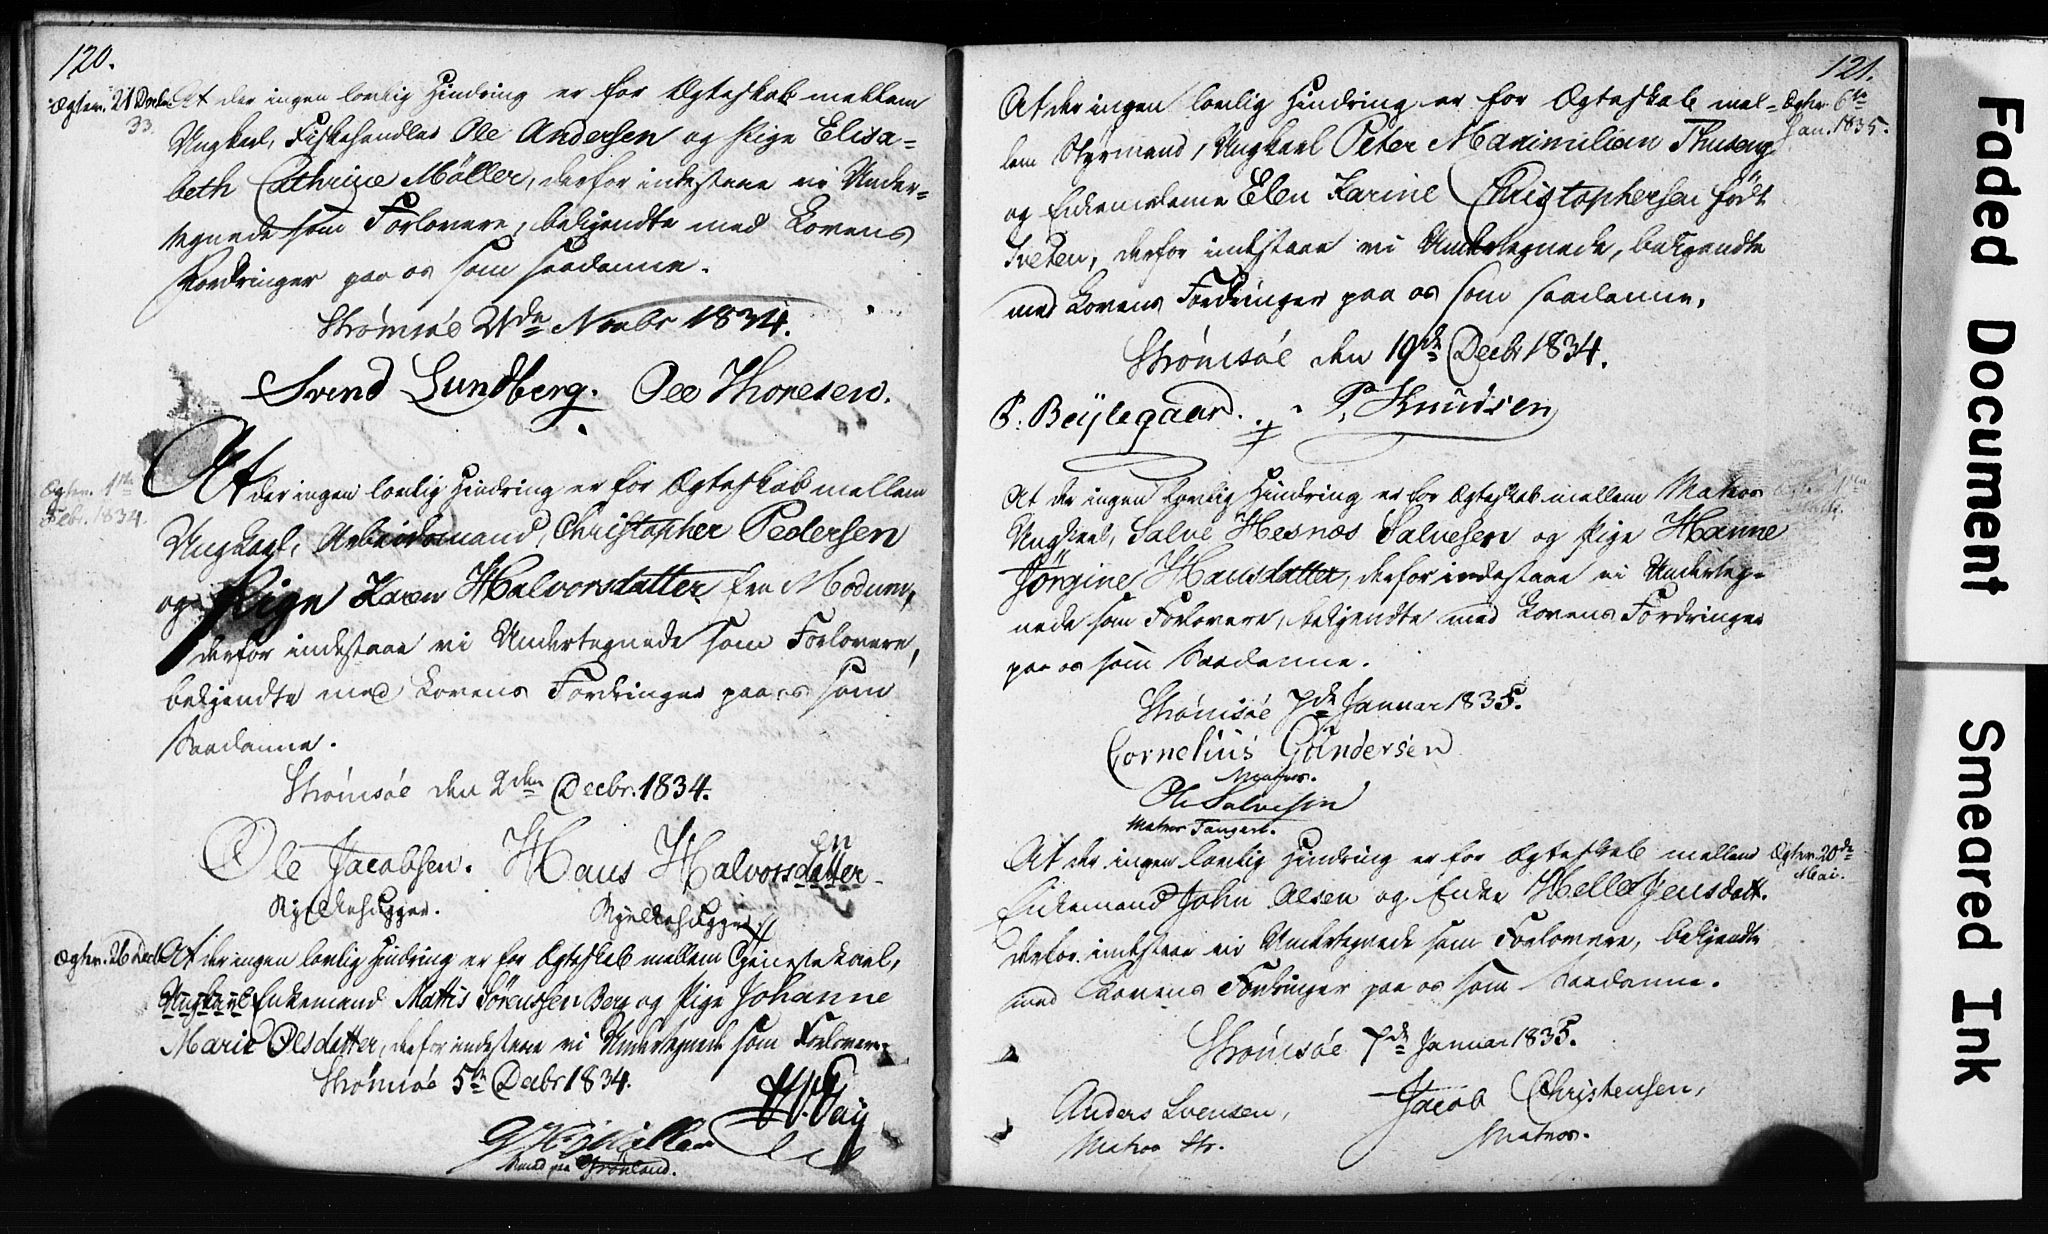 120.
Ægtev. 21 Decbr.
33.
At der ingen lovlig Hindring er for Ægteskab mellem
Ungkarl, Fiskehandler Ole Andersen og Pige Elisa-
beth Cathrine Möller, derfor indestaae vi Under-
tegnede som Forlovere, bekjendte med Lovens
Fordringer paa os som saadanne.
Strømsøe 21de Novbr 1834.
Svend Lundberg. Ole Thoresen.
Ægtev. 1ste
Febr. 1834.
At der ingen lovlig Hindring er for Ægteskab mellem
Ungkarl, Arbeidsmand, Christopher Pedersen
og Pige Karen Halvorsdatter fra Modum,
derfor indestaae vi Undertegnede som Forlovere,
bekjendte med Lovens Fordringer paa os som
saadanne.
Strømsøe den 2den Decbr. 1834.
Ole Jacobsen. Hans Halvorsdatter en
Rygtehugger. Rygtehugger
Ægtev. 26 Decbr
At der ingen lovlig Hindring er for Ægteskab mellem Tjenestekarl,
Ungkarl Enkemand Mattis Sörenssen Berg og Pige Johanne
Marie Olsdatter, derfor indestaae vi Undertegnede som Forlovere.
Strømsøe 5te Decbr 1834.
Müller
Smed paa Grönland.
121.
Ægtev. 6te
Jan. 1835.
At der ingen lovlig Hindring er for Ægteskab mel-
lem Styrmand, Ungkarl Peter Maximilian Thuseng
og Enkemadame Elen Karine Christophersen født
Tveten, derfor indestaae vi Undertegnede, bekjendte
med Lovens Fordringer paa os som saadanne.
Strømsøe den 19de Decbr 1834.
P. Beylegaard. P. Knudsen
At der ingen lovlig Hindring er for Ægteskab mellem Matros
Ungkarl, Salve Hesnæs Salvesen og Pige Hanne
Jörgine Hansdatter, derfor indestaae vi Underteg-
nede som Forlovere, bekjendte med Lovens Fordringer
paa os som saadanne.
Strømsøe 7de Januar 1835.
Cornelius Gundersen
Matros.
Ole Salvesen
Matros Tangen.
Ægtev. 20de
Mai.
At der ingen lovlig Hindring er for Ægteskab mellem
Enkemand John Olsen og Enke Helle Jensdatt.
derfor indestaae vi Undertegnede som Forlovere, bekjendte
med Lovens Fordringer paa os som saadanne.
Strømsøe 7de Januar 1835.
Anders Svensen, Jacob Christensen,
Matros Str. Matros.
Faded Document
Smeared Ink